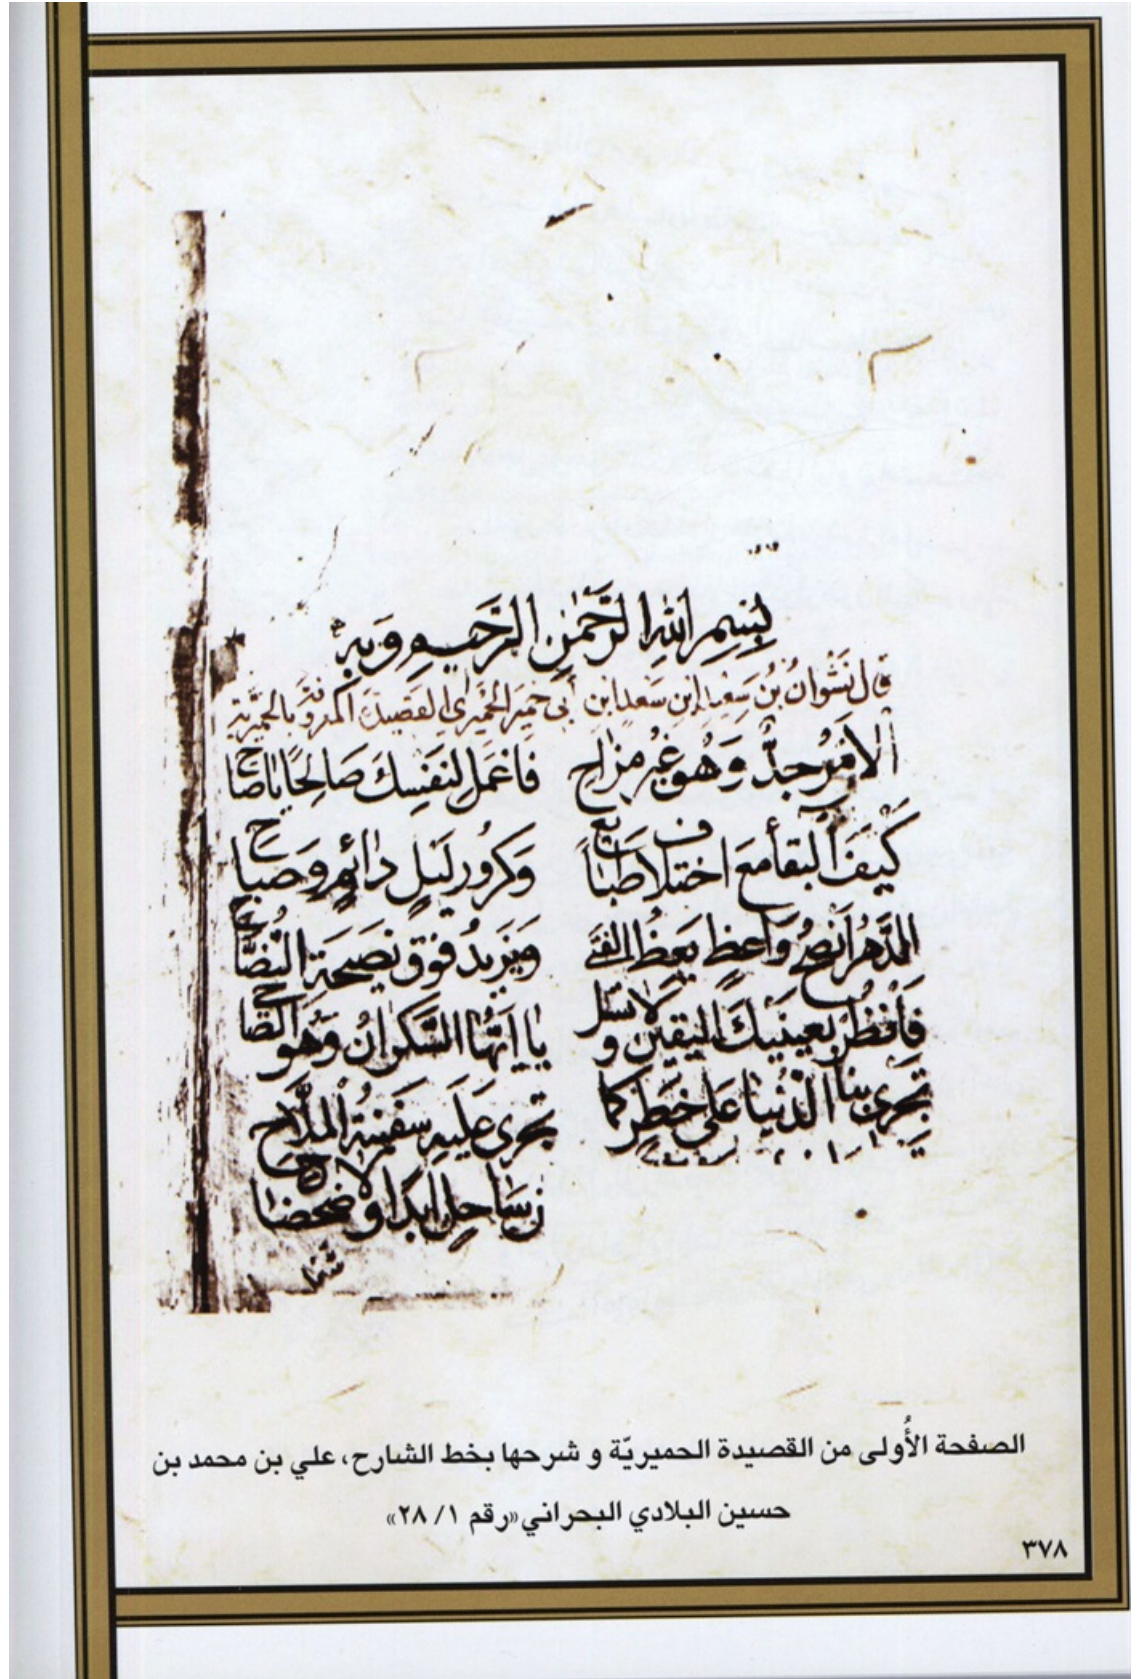 بِسْمِ اللهِ الرَّحْمٰنِ الرَّحِيمِ وَبِهِ
قال نَشْوانُ بْنُ سَعِيدِ ابنِ سَعدِ ابن أبي حِمْيَر الحِمْيَرِي القصيدة المعروفة بالحميرية
الأَمْرُ جِدٌّ وَهُوَ غَيْرُ مزاحِ فَاعْمَل لِنَفْسِكَ صَالِحًا يا صاح
كَيْفَ البقا مَعَ اختلاف طبايع وَكرُورِ لَيْلٍ دائمٍ وصباح
الدَّهْرُ أَنصحُ وَاعظٍ يَعِظُ الفتى وَيَزيدُ فوق نصيحة النُّصّاح
فَانْظُرْ بعينيك اليقين ولا تسل يا أَيُّها السَّكرانُ وَهُو الصّاح
تجرى بنا الدُّنيا على خطرٍ كما تجرى عَلَيهِ سفينةُ الملّاح
ساحِلٍ ابدًا ولا ضحضاح
الصفحة الأُولى من القصيدة الحميريّة و شرحها بخط الشارح، علي بن محمد بن
حسين البلادي البحراني «رقم ١/ ٢٨»
٣٧٨